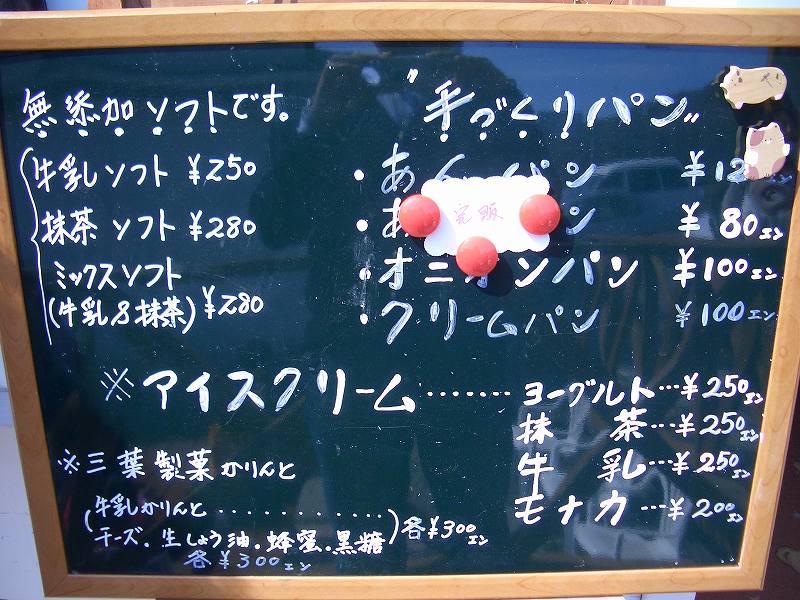 無添加ソフトです。
牛乳ソフト ¥250
抹茶ソフト ¥280
ミックスソフト
(牛乳&抹茶) ¥280
"手づくりパン"
・あんパン ¥12
完販
・あ パン ¥80エン
・オニオンパン ¥100エン
・クリームパン ¥100エン
※アイスクリーム……ヨーグルト…¥250エン
抹茶…¥250エン
牛乳…¥250エン
モナカ…¥200エン
※三葉製菓かりんと
(牛乳かりんと............
チーズ.生しょう油.蜂蜜.黒糖)各¥300エン
各¥300エン